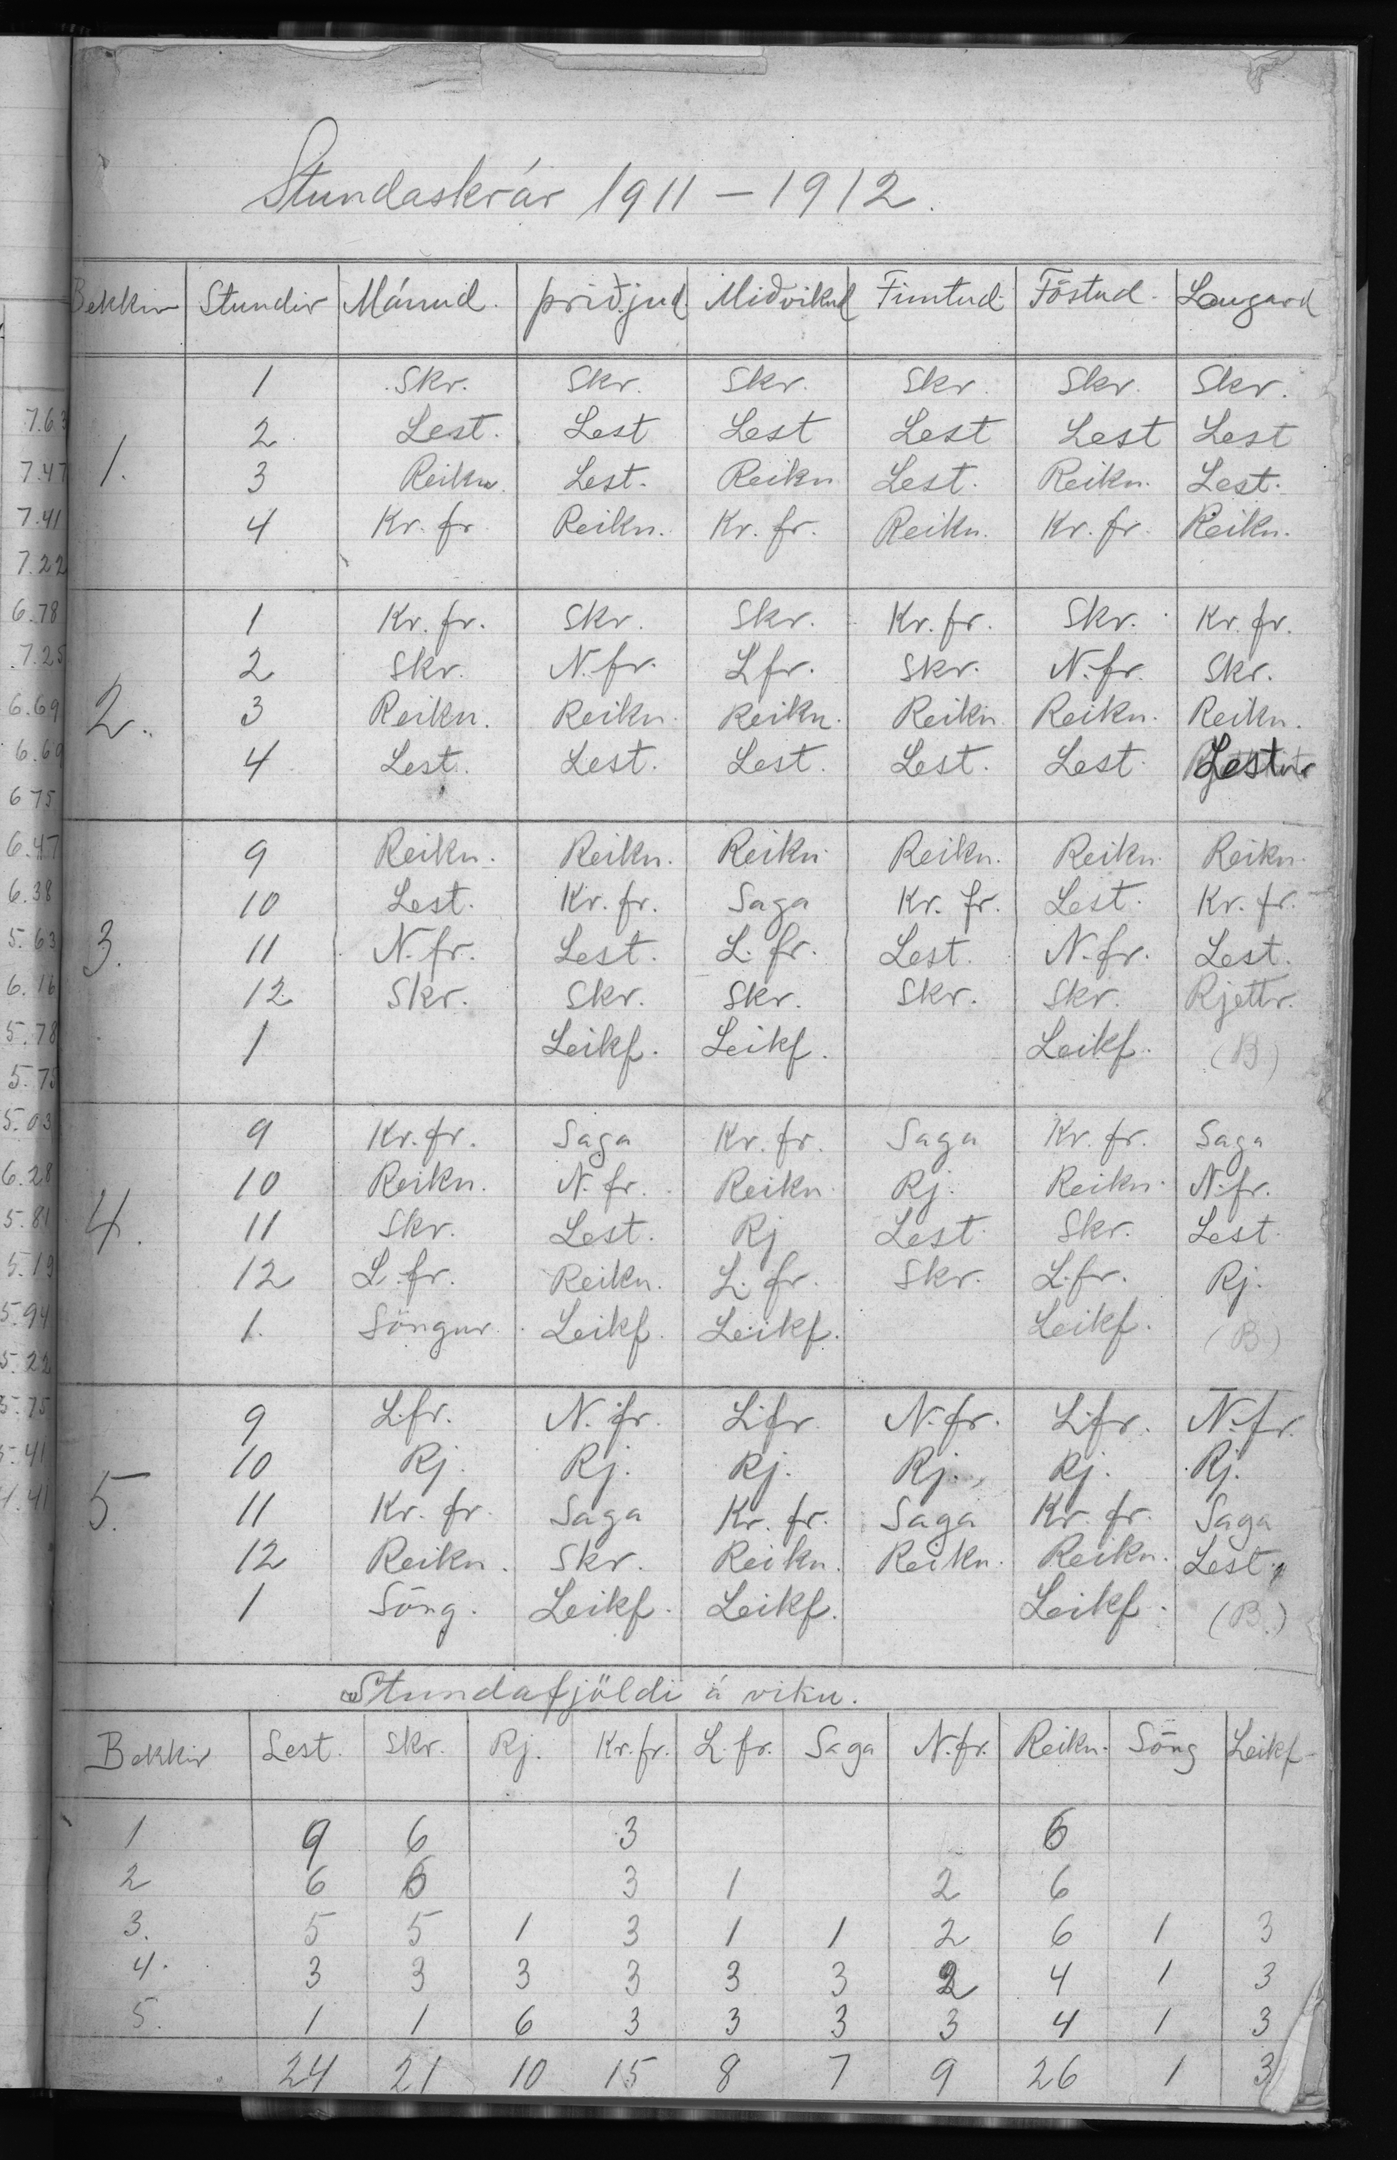 Stundaskrár 1911 – 1912.
Bekkir Stundir Mánud. Þriðjud. Miðvikud Fimtud. Föstud. Laugard
1 Skr. Skr. Skr. Skr. Skr. Skr.
2 Lest. Lest Lest Lest Lest Lest
1. 3 Reikn. Lest. Reikn Lest. Reikn. Lest.
4 Kr. fr Reikn. Kr. fr. Reikn. Kr. fr. Reikn.
1 Kr. fr. Skr. Skr. Kr. fr. Skr. Kr. fr.
2 Skr. N. fr. L fr. Skr. N. fr. Skr.
2. 3 Reikn. Reikn. Reikn. Reikn. Reikn. Reikn.
4 Lest. Lest. Lest. Lest. Lest. Lestur
9 Reikn. Reikn. Reikn. Reikn. Reikn. Reikn.
10 Lest. Kr. fr. Saga Kr. fr. Lest. Kr. fr.
3. 11 N. fr. Lest. L. fr. Lest. N. fr. Lest.
12 Skr. Skr. Skr. Skr. Skr. Rjettr.
1 Leikf. Leikf. Leikf. (B)
9 Kr. fr. Saga Kr. fr. Saga Kr. fr. Saga
10 Reikn. N. fr. Reikn. Rj. Reikn. N. fr.
4. 11 Skr. Lest. Rj Lest. Skr. Lest.
12 L. fr. Reikn. L. fr. Skr. L. fr. Rj.
1. Söngur. Leikf. Leikf. Leikf. (B)
9 L. fr. N. fr. L. fr. N. fr. L. fr. N. fr.
10 Rj. Rj. Rj. Rj. Rj. Rj.
5. 11 Kr. fr. Saga Kr. fr. Saga Kr. fr. Saga
12 Reikn. Skr. Reikn. Reikn. Reikn. Lest.
1 Söng. Leikf. Leikf. Leikf. (B.)
Stundafjöldi á viku.
Bekkir Lest. Skr. Rj. Kr. fr. L. fr. Saga N. fr. Reikn. Söng Leikf
1 9 6 3 6
2 6 6 3 1 2 6
3. 5 5 1 3 1 1 2 6 1 3
4. 3 3 3 3 3 3 2 4 1 3
5. 1 1 6 3 3 3 3 4 1 3
24 21 10 15 8 7 9 26 1 3
7.47
7.41
7.22
6.78
7.25
6.69
6.69
6 75
6.47
6.38
5.63
6.16
5.78
5.75
5.03
6.28
5.81
5.19
5.94
5.22
5.75
5.41